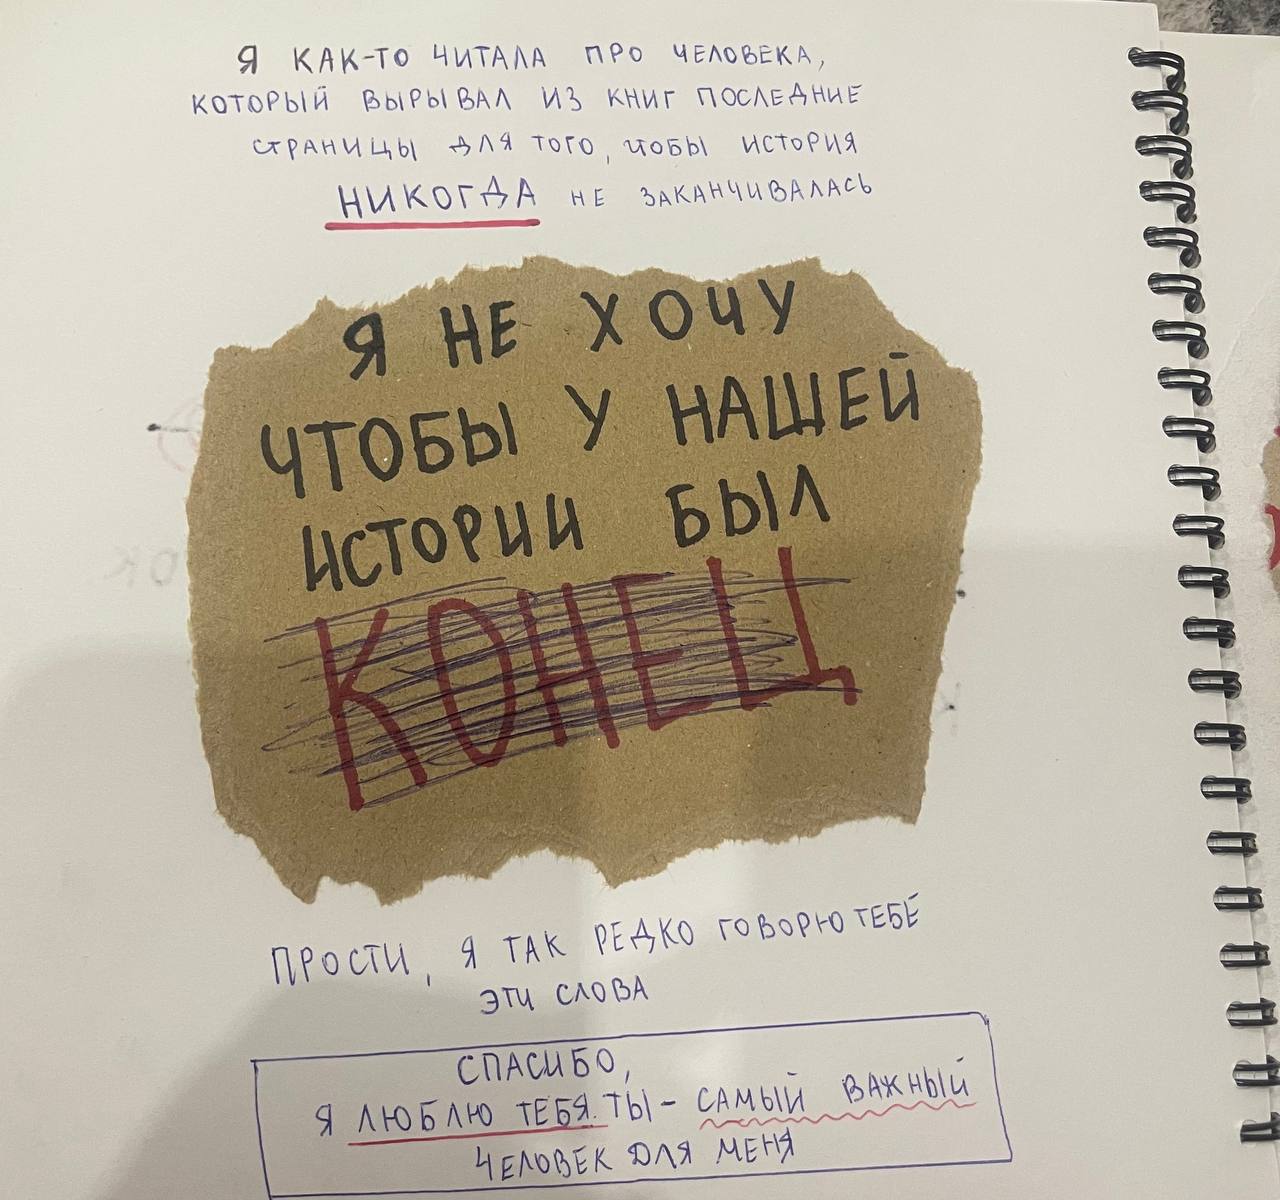 Я КАК-ТО ЧИТАЛА ПРО ЧЕЛОВЕКА,
КОТОРЫЙ ВЫРЫВАЛ ИЗ КНИГ ПОСЛЕДНИЕ
СТРАНИЦЫ ДЛЯ ТОГО, ЧТОБЫ ИСТОРИЯ
НИКОГДА НЕ ЗАКАНЧИВАЛАСЬ
Я НЕ ХОЧУ
ЧТОБЫ У НАШЕЙ
ИСТОРИИ БЫЛ
КОНЕЦ
ПРОСТИ, Я ТАК РЕДКО ГОВОРЮ ТЕБЕ
ЭТИ СЛОВА
СПАСИБО,
Я ЛЮБЛЮ ТЕБЯ. ТЫ - САМЫЙ ВАЖНЫЙ
ЧЕЛОВЕК ДЛЯ МЕНЯ